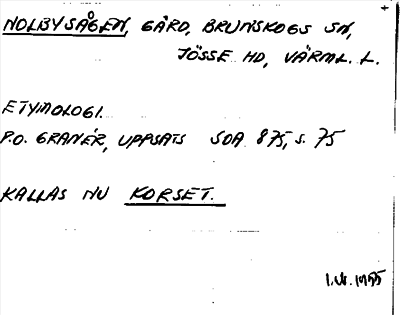 NOLBYSÅGEN, GÅRD, BRUNSKOGS SN,
JÖSSE HD, VÄRML. L.
ETYMOLOGI.
P.O. GRANÉR, UPPSATS SOA 875, S. 75
KALLAS NU KORSET.